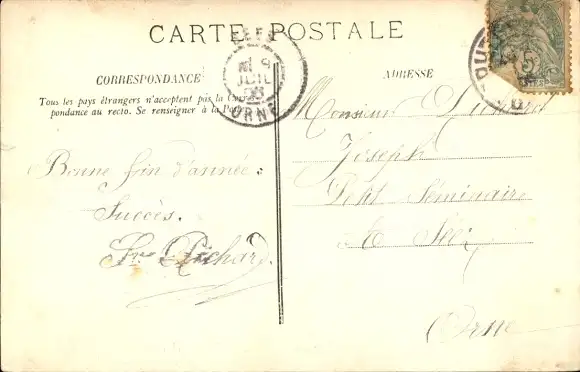 CARTE POSTALE
CORRESPONDANCE
Tous les pays étrangers n'acceptent pas la Corres-
pondance au recto. Se renseigner à la Poste
Bonne fin d'année.
Succès.
Richard.
ADRESSE
Monsieur
Joseph
Petit Séminaire
Séez
Orne
JUIL
ORNE
5